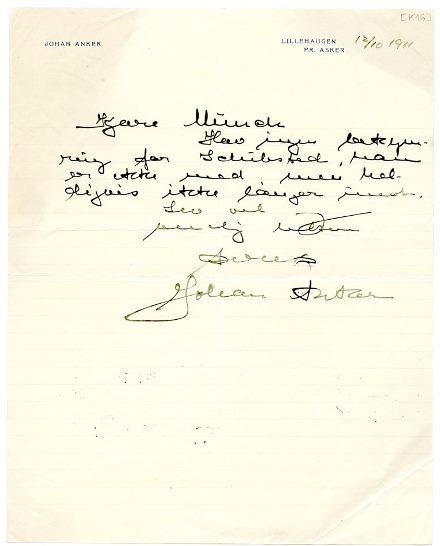 [K16]
JOHAN ANKER
LILLEHAUGEN
PR. ASKER
12/10 1911
Kjære Munch
Hav ingen bekym-
ring for Schibsted, han
er ikke med, men hel-
digvis ikke længer
Lev vel
venlig
Deres
Johan Anker